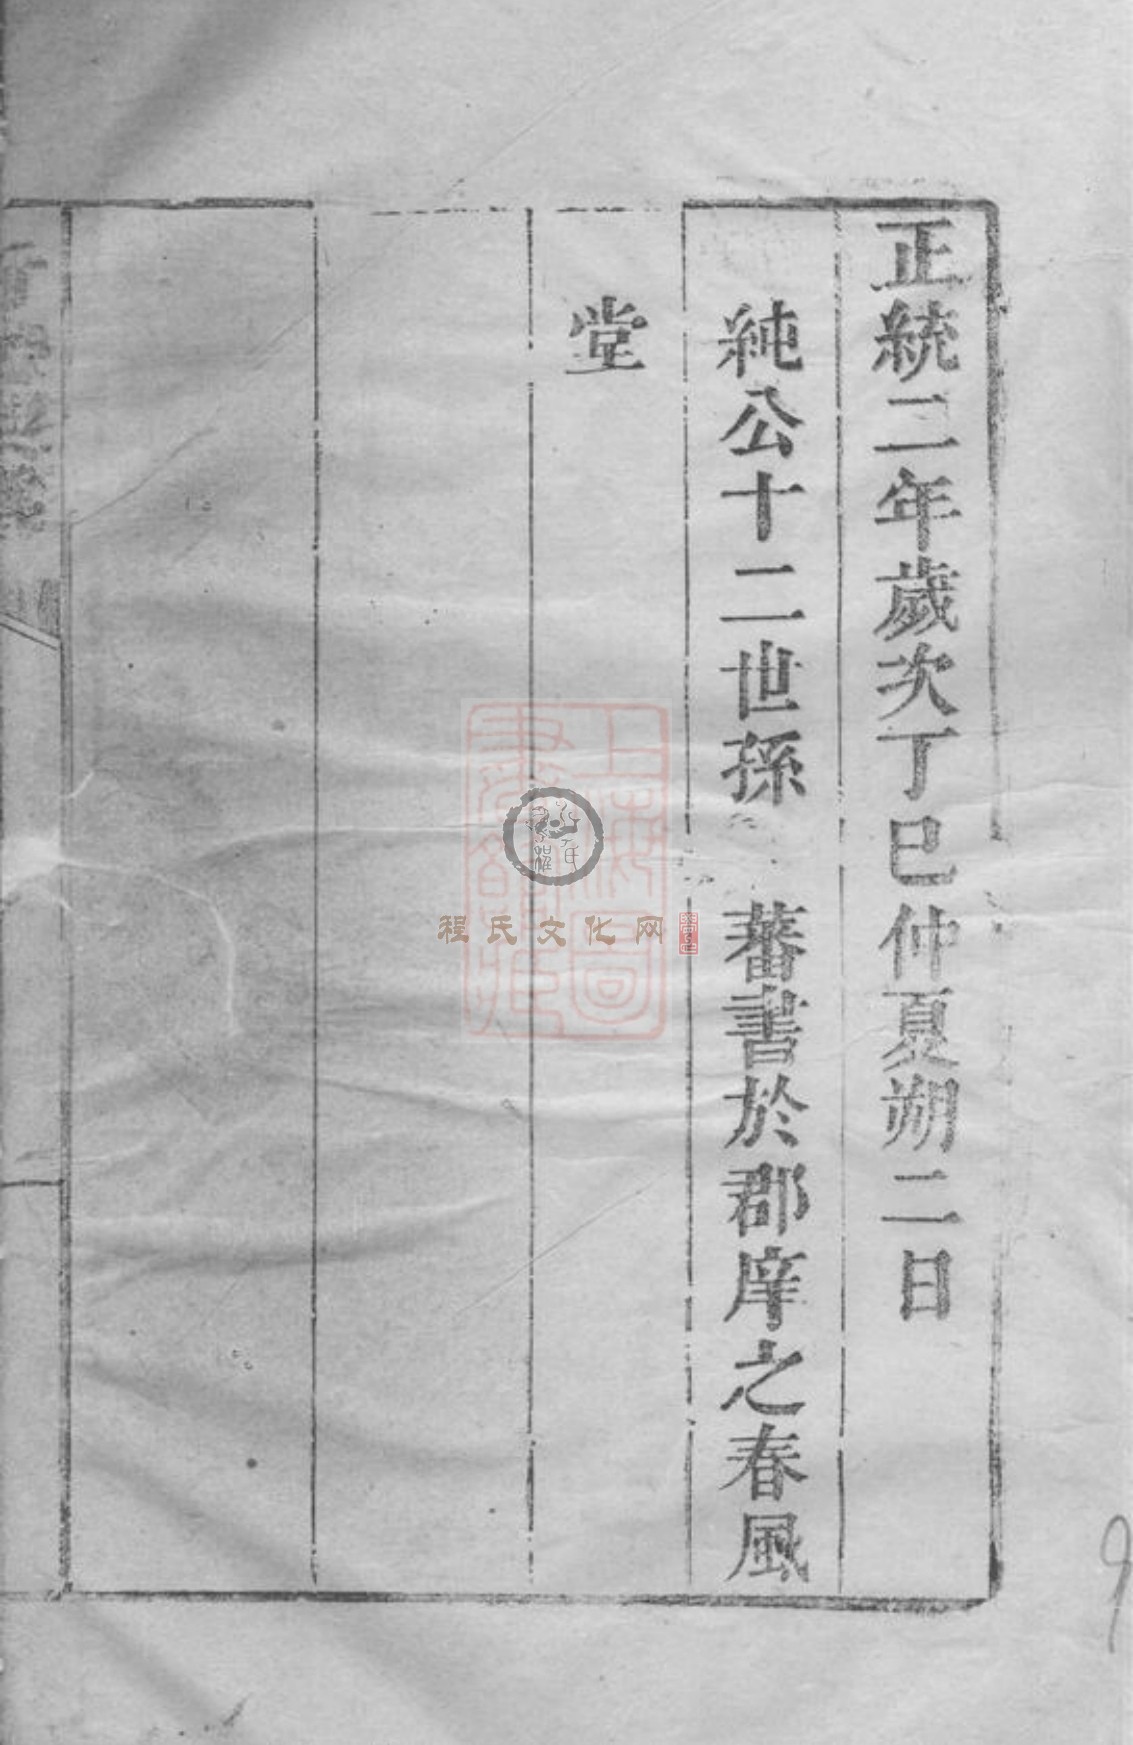 正統二年歲次丁巳仲夏朔二日
純公十二世孫 蕃書於郡庠之春風
堂
上海圖
程氏文化网
程氏
9